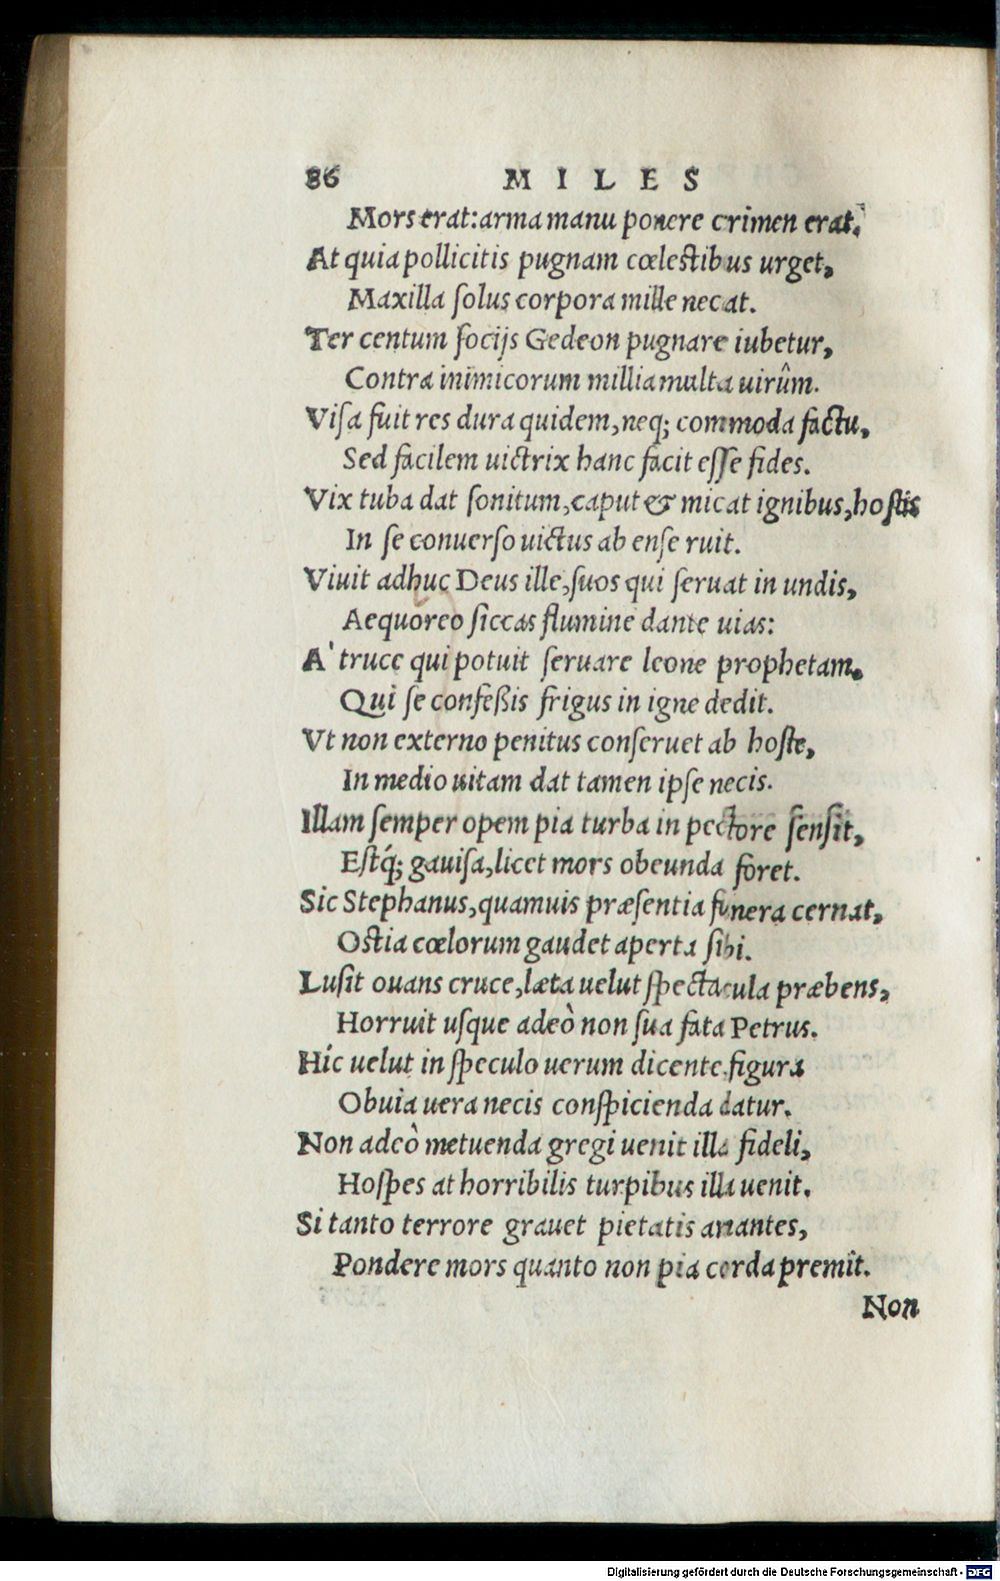 86 MILES
Mors erat: arma manu ponere crimen erat.
At quia pollicitis pugnam cœlestibus urget,
Maxilla ſolus corpora mille necat.
Ter centum ſocijs Gedeon pugnare iubetur,
Contra inimicorum millia multa uirûm.
Viſa fuit res dura quidem, neq; commoda factu,
Sed facilem uictrix hanc facit eſſe fides.
Vix tuba dat ſonitum, caput & micat ignibus, hoſtis
In ſe conuerſo uictus ab enſe ruit.
Viuit adhuc Deus ille, ſuos qui ſeruat in undis,
Aequoreo ſiccas flumine dante uias:
A' truce qui potuit ſeruare leone prophetam,
Qui ſe confeßis frigus in igne dedit.
Vt non externo penitus conſeruet ab hoſte,
In medio uitam dat tamen ipſe necis.
Illam ſemper opem pia turba in pectore ſenſit,
Eſtq́; gauiſa, licet mors obeunda foret.
Sic Stephanus, quamuis præſentia funera cernat,
Ostia cœlorum gaudet aperta ſibi.
Luſit ouans cruce, læta uelut ſpectacula præbens,
Horruit uſque adeò non ſua fata Petrus.
Híc uelut in ſpeculo uerum dicente figura
Obuia uera necis conſpicienda datur.
Non adeò metuenda gregi uenit illa fideli,
Hoſpes at horribilis turpibus illa uenit.
Si tanto terrore grauet pietatis amantes,
Pondere mors quanto non pia corda premit.
Non
Digitalisierung gefördert durch die Deutsche Forschungsgemeinschaft - DFG